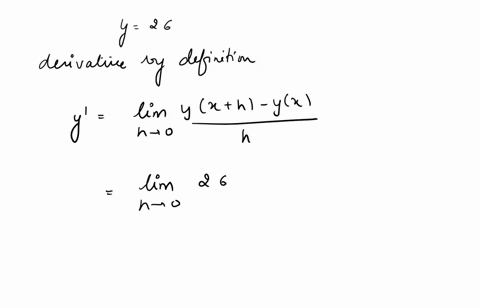 y = 26
derivative by definition
y' = lim h→0 y(x+h) - y(x) / h
= lim h→0 26